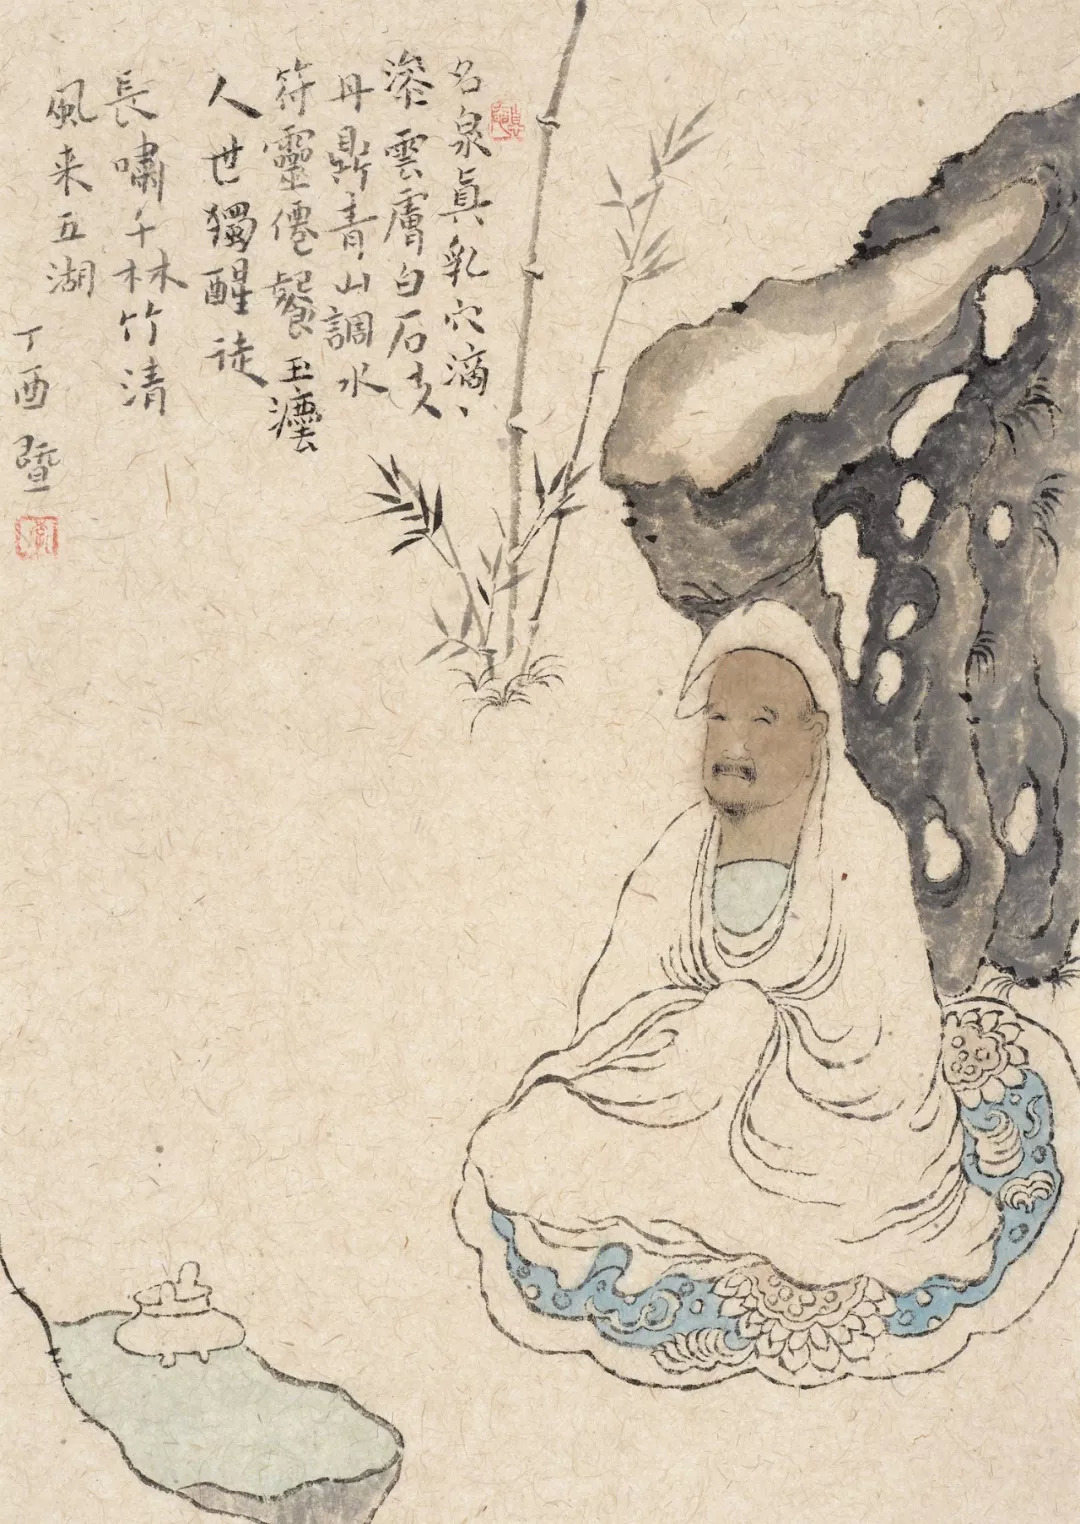 名泉眞乳穴滴丶
滲雲膚白石支
丹鼎青山調水
符靈僊餐玉灋
人世獨醒徒
長嘯千林竹清
風来五湖
丁酉 暨